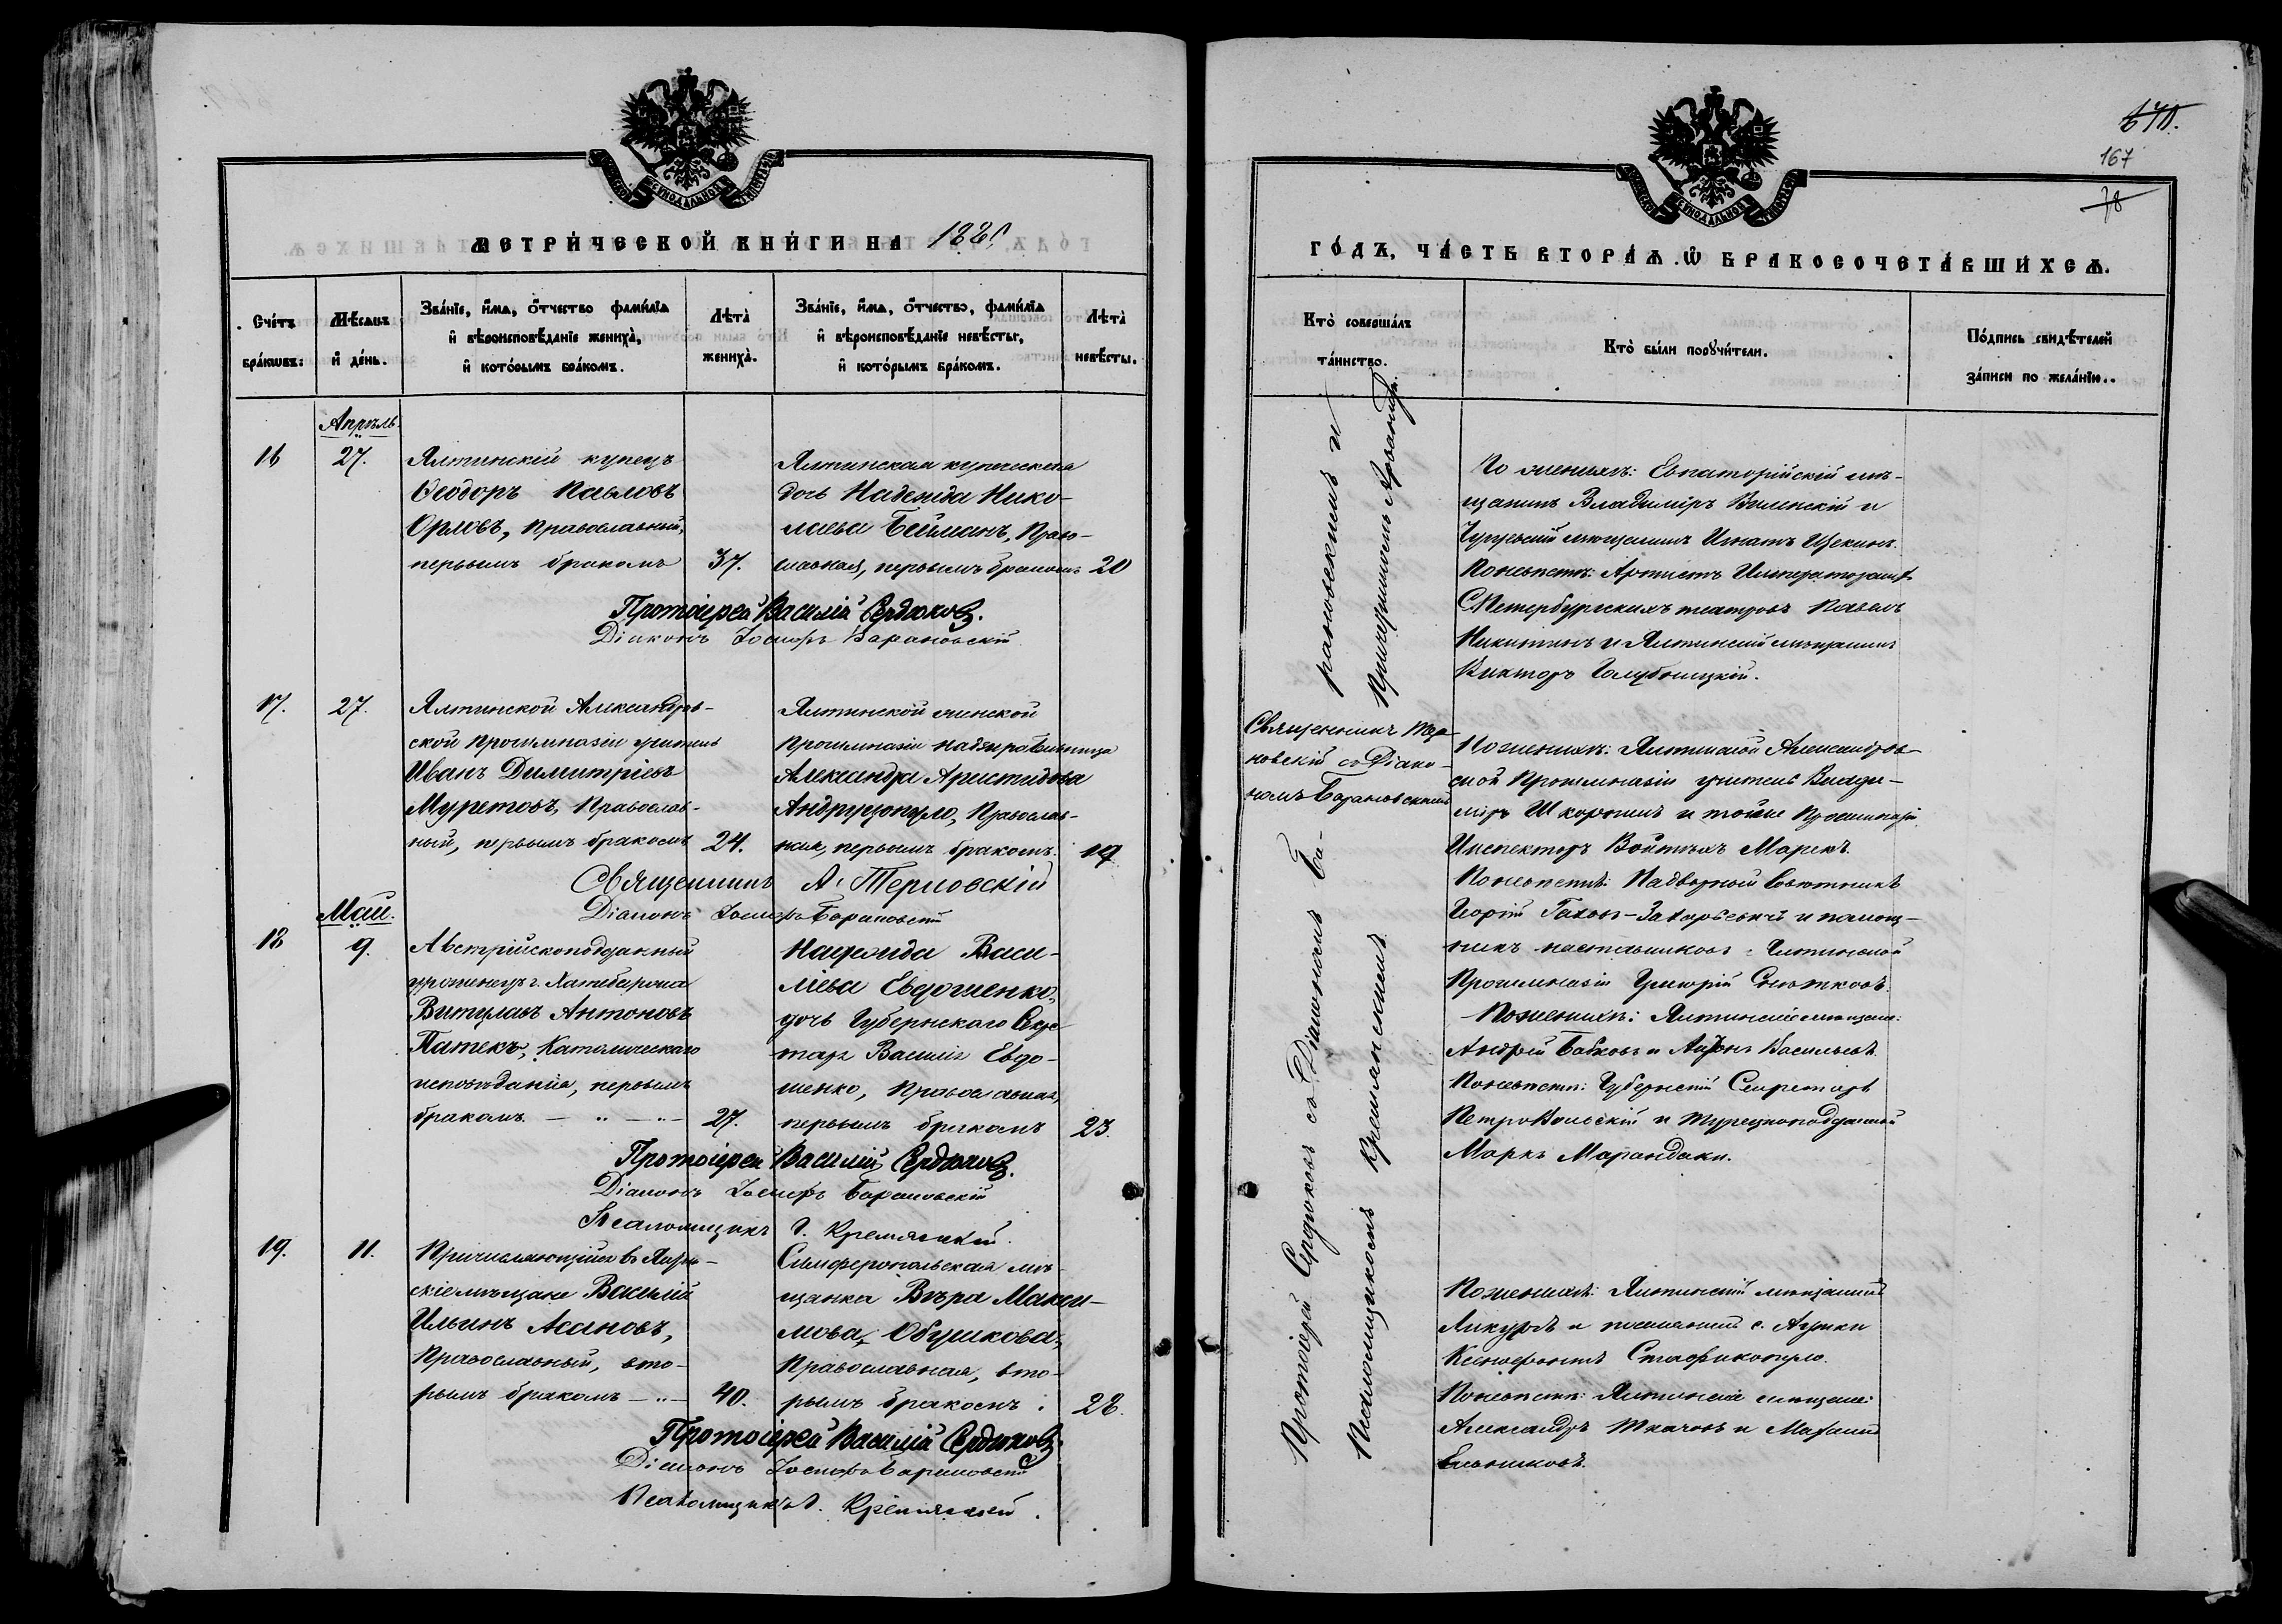 МЕТРИЧЕСКОЙ КНИГИ НА 188
Счетъ браковъ:
Мѣсяцъ и день.
Званіе, имя, отчество фамилія
и вѣроисповѣданіе жениха,
и которымъ бракомъ.
Лѣта жениха.
Званіе, имя, отчество, фамилія
и вѣроисповѣданіе невѣсты,
и которымъ бракомъ.
Лѣта невѣсты.
Апрѣль.
16 27.
Ялтинскій купецъ
Ѳеодоръ Павловъ
Орловъ, Православный,
первымъ бракомъ 37.
Ялтинская купеческая
дочь Надежда Нико-
лаева Бейманъ, Право-
славная, первымъ бракомъ 20
Протоіерей Василій Сердюковъ.
Діаконъ Іосифъ Барановскій
17. 27.
Ялтинской Александров-
ской Прогимназіи учитель
Иванъ Димитріевъ
Муретовъ, Православ-
ный, первымъ бракомъ 24.
Ялтинской женской
Прогимназіи надзирательница
Александра Аристидова
Андруцопуло, Православ-
ная, первымъ бракомъ. 19
Священникъ А. Терновскій
Діаконъ Іосифъ Барановскій
Май.
18 9.
Австрійскоподданный
уроженецъ г.
Антоновъ
Патекъ, Католическаго
исповѣданія, первымъ
бракомъ. — " — " — 27.
Надежда Васи-
ліева Евдошенко,
дочь Губернскаго Секре-
таря Василія Евдо-
шенко, Православная,
первымъ бракомъ 23.
Протоіерей Василій Сердюковъ.
Діаконъ Іосифъ Барановскій
Псаломщикъ Кремянскій.
19. 11.
Причисляющійся въ
скіе мѣщане Василій
Ильинъ Асановъ,
Православный, вто-
рымъ бракомъ — " — 40.
Симферопольская мѣ-
щанка Вѣра Макси-
мова, Обушкова,
Православная, вто-
рымъ бракомъ: 28.
Протоіерей Василій Сердюковъ.
Діаконъ Іосифъ Барановскій
Псаломщикъ Кремянскій.
167
78
ГОДЪ, ЧАСТЬ ВТОРАЯ Ѿ БРАКОСОЧЕТАВШИХСЯ.
Кто совершалъ
таинство.
Кто были поручители.
Подпись свидѣтелей
записи по желанію.
Протоіерей Сердюковъ съ Діакономъ Ба-
рановскимъ и
Псаломщикомъ Кремянскимъ
Священникъ Тер-
новскій съ Діако-
номъ Барановскимъ
По женихѣ: Евпаторійскій мѣ-
щанинъ Владиміръ Виленскій и
мѣщанинъ Игнатъ Щекинъ.
По невѣстѣ: Артистъ Императорскихъ
СПетербургскихъ театровъ Павелъ
Никитинъ и Ялтинскій мѣщанинъ
Викторъ Голубницкій.
По женихѣ: Ялтинской Александров-
ской Прогимназіи учитель Влади-
міръ Шкорпилъ и тойже Прогимназіи
Инспекторъ Войтѣхъ Марекъ.
По невѣстѣ: Надворный Совѣтникъ
Георгій и помощ-
никъ наставниковъ Ялтинской
Прогимназіи Григорій Снѣтковъ.
По женихѣ: Ялтинскіе мѣщане:
Андрей Бабковъ и Антонъ Васильевъ.
По невѣстѣ: Губернскій Секретарь
Петро и Турецкоподданный
Маркъ Марандаки.
По женихѣ: Ялтинскій мѣщанинъ
Ликургъ и поселянинъ с. Аутки
Ксенофонтъ Стафикопуло.
По невѣстѣ: Ялтинскіе мѣщане:
Александръ Ткачовъ и